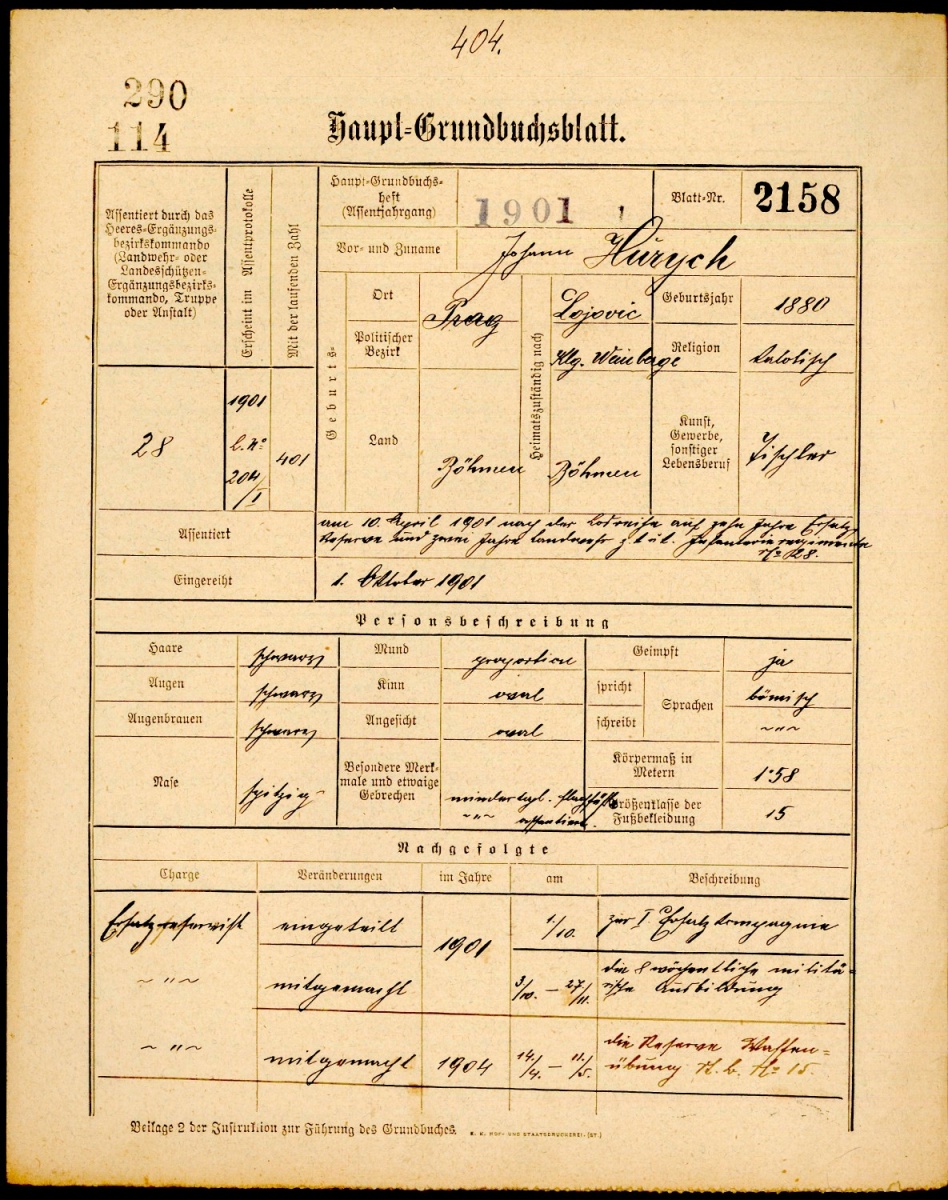 404.
290
114
Haupt-Grundbuchsblatt.
Assentiert durch das
Heeres-Ergänzungs-
bezirkskommando
(Landwehr- oder
Landesschützen-
Ergänzungsbezirks-
kommando, Truppe
oder Anstalt)
Erscheint im Assentprotokolle
Mit der laufenden Zahl
Haupt-Grundbuchs-
heft
(Assentjahrgang)
1901
Blatt-Nr.
2158
Vor- und Zuname
Johann Hurych
Geburts-
Ort
Prag
Politischer
Bezirk
Land
Böhmen
Heimatszuständig nach
Lojovic
Klg. Weinberge
Böhmen
Geburtsjahr
1880
Religion
katolisch
Kunst,
Gewerbe,
sonstiger
Lebensberuf
Tischler
28
1901
401
Assentiert
am 10. April 1901 nach der Losreihe auf zehn Jahre Ersatz
Reserve und zwei Jahre Landwehr z. t. ü. t. Infanterieregimente
No 28.
Eingereiht
1. Oktober 1901
Personsbeschreibung
Haare
schwarz
Mund
proportion
Geimpft
ja
Augen
schwarz
Kinn
oval
spricht
Sprachen
bömisch
Augenbrauen
schwarz
Angesicht
oval
schreibt
~"~
Nase
spitzig
Besondere Merk-
male und etwaige
Gebrechen
mindertgl.
~"~
Körpermaß in
Metern
1·58
Größenklasse der
Fußbekleidung
15
Nachgefolgte
Charge
Veränderungen
im Jahre
am
Beschreibung
Ersatzreservist
eingeteilt
1901
1./10.
zur I Ersatzkompagnie
~"~
mitgemacht
3/10. – 27/11.
die 8 wöchentliche militä-
rische Ausbildung
~"~
mitgemacht
1904
14/4. – 11/5.
die Reserve Waffen-
übung R. b. No 15.
Beilage 2 der Instruktion zur Führung des Grundbuches.
K. K. HOF- UND STAATSDRUCKEREI. (ST.)